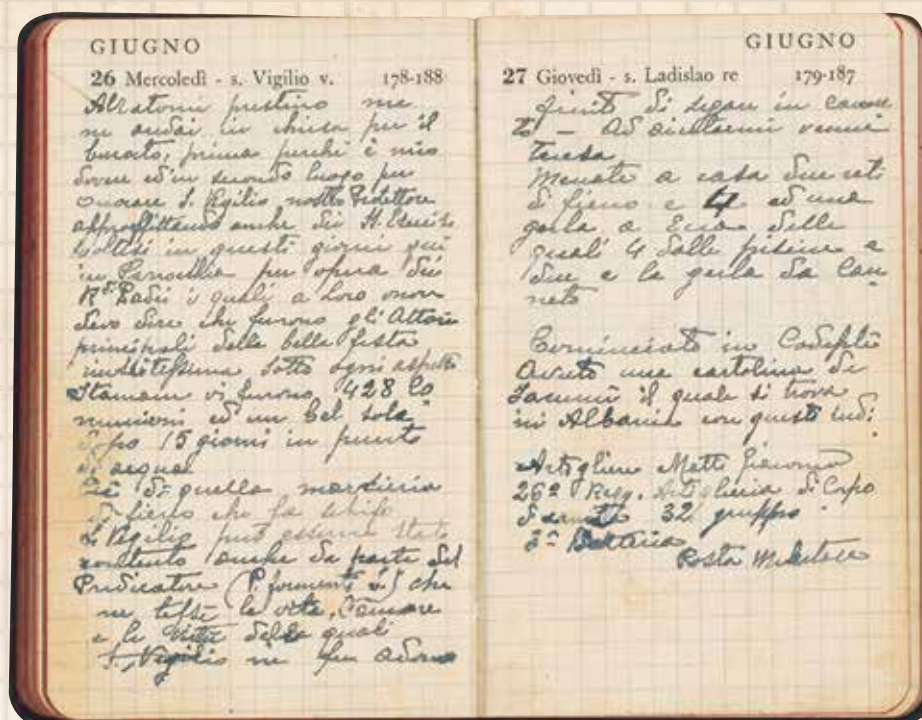 GIUGNO
26 Mercoledì - s. Vigilio v. 178-188
Alzatomi prestino me
ne andai in chiesa per il
perchè è mio
dovere ed in secondo luogo per
onorare S. Vigilio, nostro
approffittando anche dei
in questi giorni qui
in Parrocchia per opera dei
R.di Padri i quali a loro onore
devo dire che furono gli Attori
principali della bella festa
sotto ogni aspetto
Stamani vi furono 428 Co
munioni ed un bel sole
dopo 15 giorni in punto
di acqua
di quella
di fieno che fa schifo
S. Vigilio può essere stato
contento anche da parte del
Predicatore (P. che
ne tessè la vita,
e le virtù delle quali
S. Vigilio ne fu adorno
GIUGNO
27 Giovedì - s. Ladislao re 179-187
Finito di segare in canne
to - Ad aiutarmi venne
Teresa
Menate a casa due reti
di fieno e 4 ed una
gerla a Enea delle
quali 4 dalle a
due e la gerla da Can
neto
Cominciato in
Avuto una cartolina di
il quale si trova
in Albania con questo indi:
Artigliere Metti Giacomo
26º Regg. Artiglieria di Corpo
d'armata 32 gruppo
3ª Batteria
Posta Militare